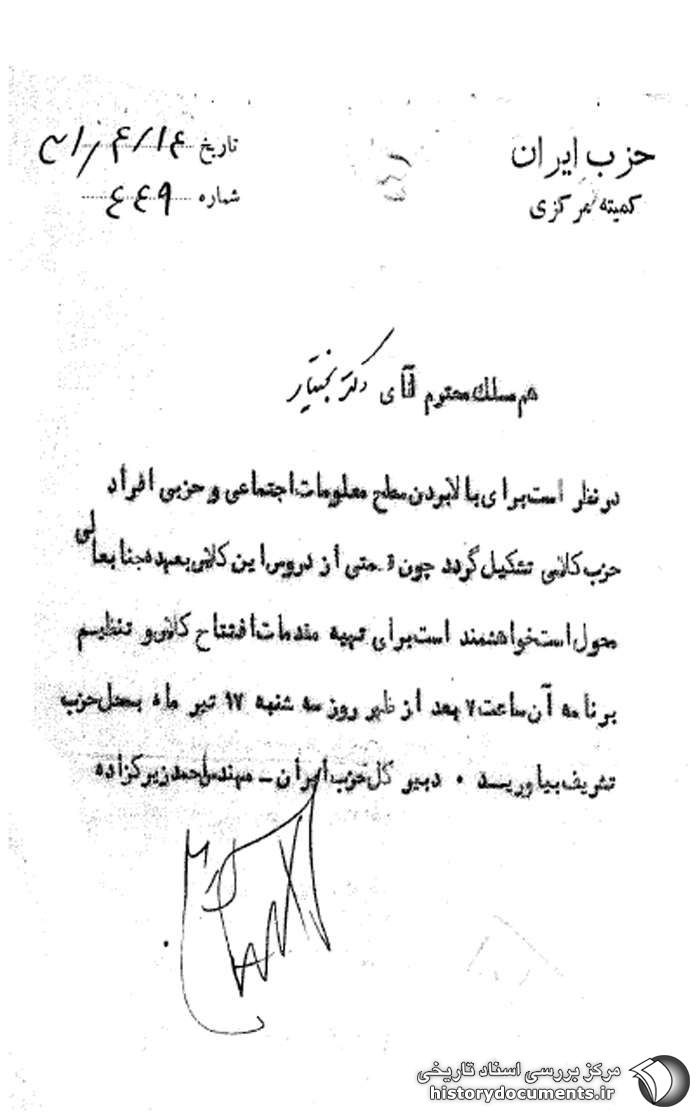 حزب ایران
کمیته مرکزی
تاریخ ۳۱/۴/۱۴
شماره ۴۴۹
هم مسلک محترم آقای دکتر بختیار
در نظر است برای بالا بردن سطح معلومات اجتماعی و حزبی افراد
حزب کلاسی تشکیل گردد چون قسمتی از دروس این کلاس بعهده جنابعالی
محول است خواهشمند است برای تهیه مقدمات افتتاح کلاس و تنظیم
برنامه آن ساعت ۷ بعد از ظهر روز سه شنبه ۱۷ تیر ماه بمحل حزب
تشریف بیاورید . دبیر کل حزب ایران - مهندس احمد زیرک‌زاده
مرکز بررسی اسناد تاریخی
historydocuments.ir